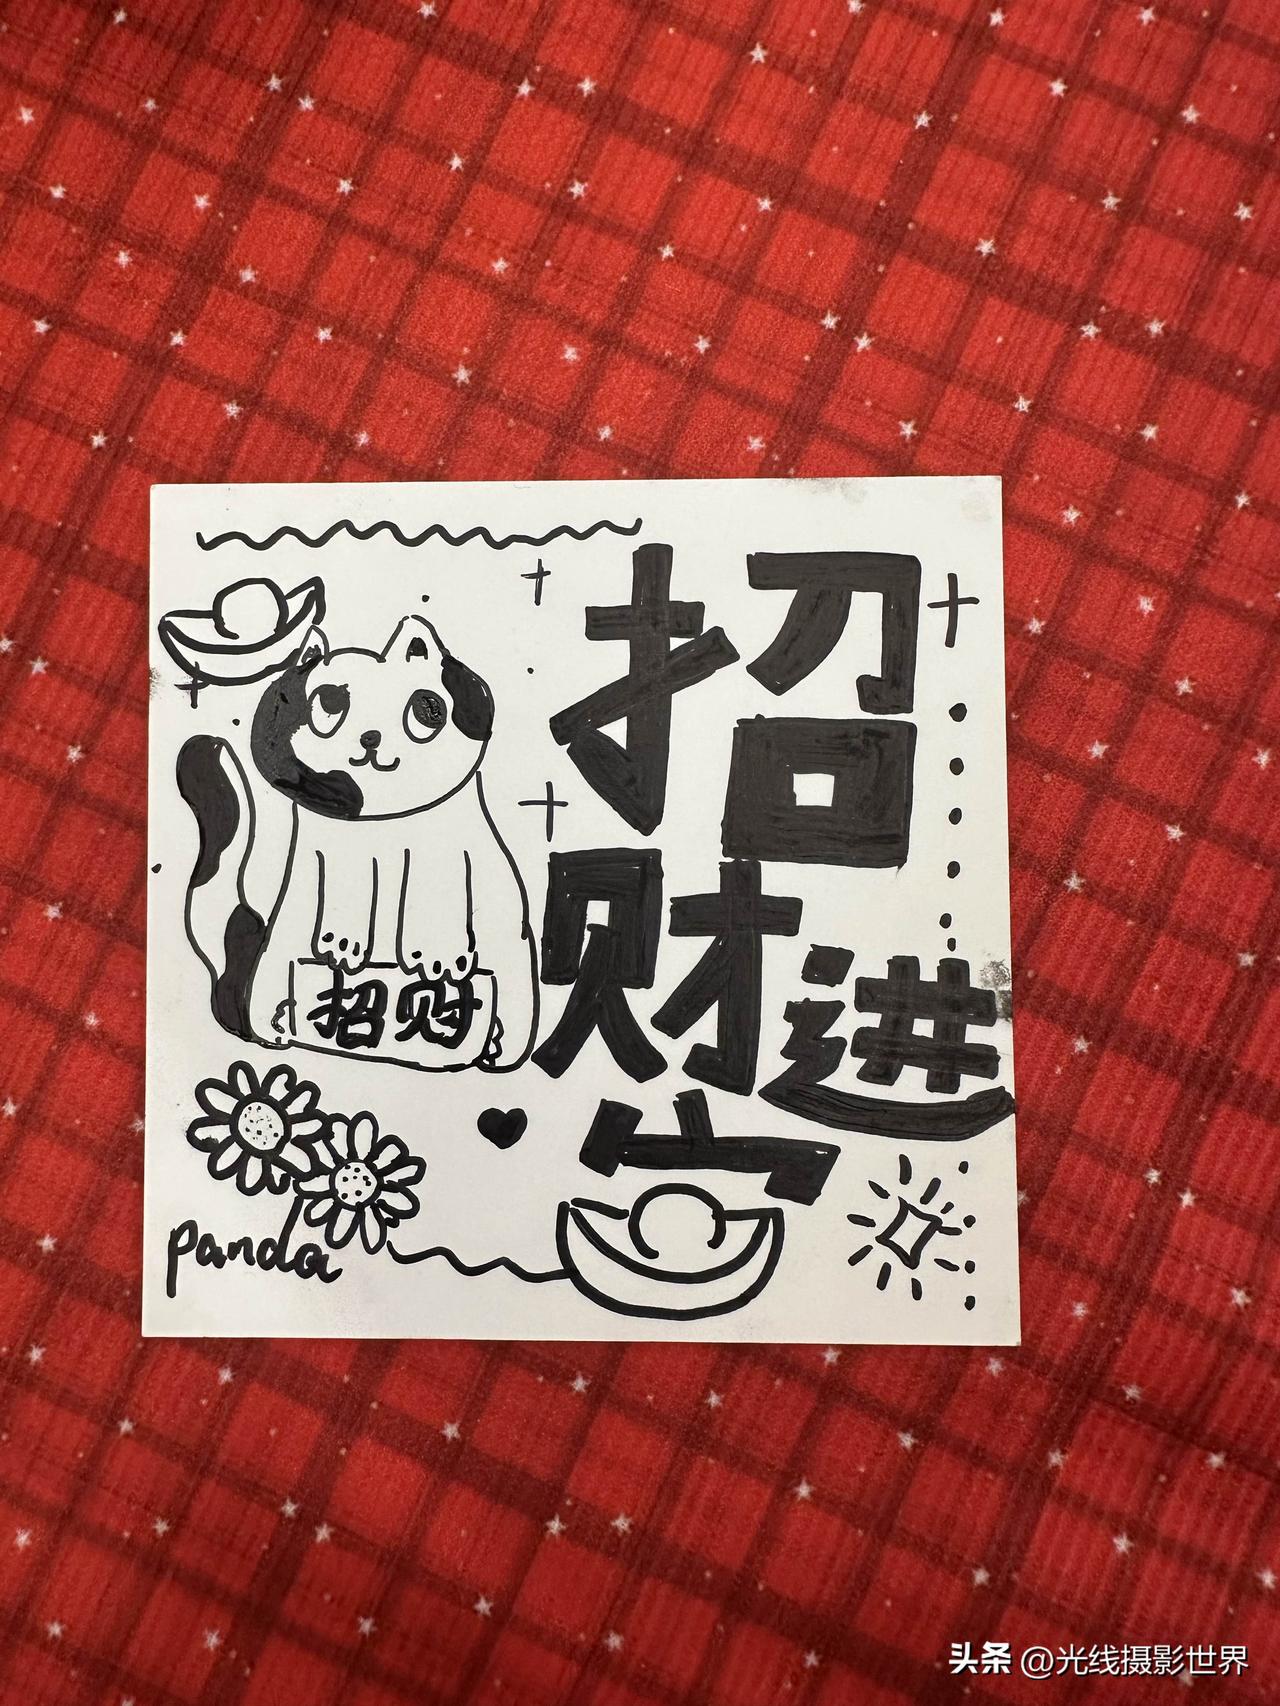 招
财进
宀
招财
panda
头条 @光线摄影世界